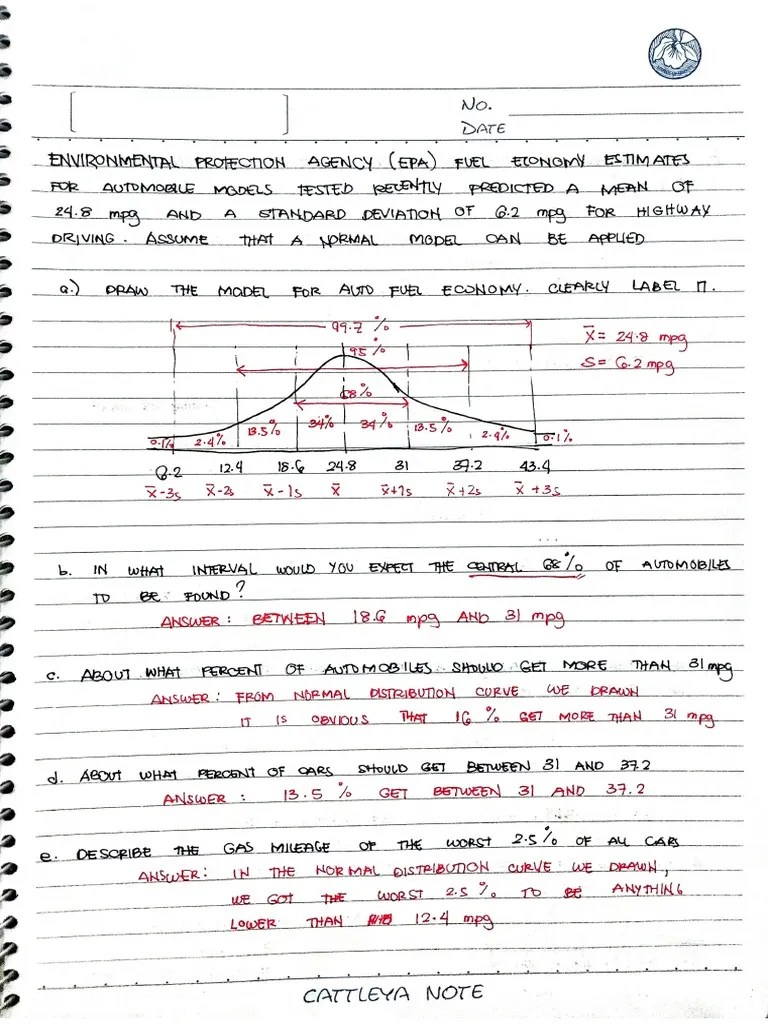 NO.
DATE
ENVIRONMENTAL PROTECTION AGENCY (EPA) FUEL ECONOMY ESTIMATES
FOR AUTOMOBILE MODELS TESTED RECENTLY PREDICTED A MEAN OF
24.8 mpg AND A STANDARD DEVIATION OF 6.2 mpg FOR HIGHWAY
DRIVING. ASSUME THAT A NORMAL MODEL CAN BE APPLIED
a.) DRAW THE MODEL FOR AUTO FUEL ECONOMY. CLEARLY LABEL IT.
99.7 %
x̄ = 24.8 mpg
95 %
S = 6.2 mpg
68 %
0.1% 2.4% 13.5% 34% 34% 13.5% 2.4% 0.1%
6.2 12.4 18.6 24.8 31 37.2 43.4
x̄-3s x̄-2s x̄-1s x̄ x̄+1s x̄+2s x̄+3s
b. IN WHAT INTERVAL WOULD YOU EXPECT THE CENTRAL 68% OF AUTOMOBILES
TO BE FOUND?
ANSWER: BETWEEN 18.6 mpg AND 31 mpg
c. ABOUT WHAT PERCENT OF AUTOMOBILES SHOULD GET MORE THAN 31 mpg
ANSWER: FROM NORMAL DISTRIBUTION CURVE WE DRAWN
IT IS OBVIOUS THAT 16 % GET MORE THAN 31 mpg
d. ABOUT WHAT PERCENT OF CARS SHOULD GET BETWEEN 31 AND 37.2
ANSWER: 13.5 % GET BETWEEN 31 AND 37.2
e. DESCRIBE THE GAS MILEAGE OF THE WORST 2.5% OF ALL CARS
ANSWER: IN THE NORMAL DISTRIBUTION CURVE WE DRAWN,
WE GOT THE WORST 2.5 % TO BE ANYTHING
LOWER THAN 12.4 mpg
CATTLEYA NOTE